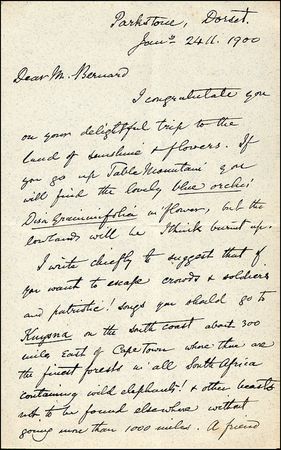 Parkstone, Dorset.
Jany. 24th. 1900
Dear Mr. Bernard
I congratulate you
on your delightful trip to the
land of sunshine & flowers. If
you go up Table Mountain you
will find the lovely blue orchis
Disa graminifolia in flower, but the
lowlands will be I think burnt up.
I write chiefly to suggest that if
you want to escape crowds & soldiers
and patriotic! songs you should go to
Knysna on the south coast about 300
miles East of Cape Town where there are
the finest forests in all South Africa
containing wild elephants! & other beasts
not to be found elsewhere without
going more than 1000 miles. A friend